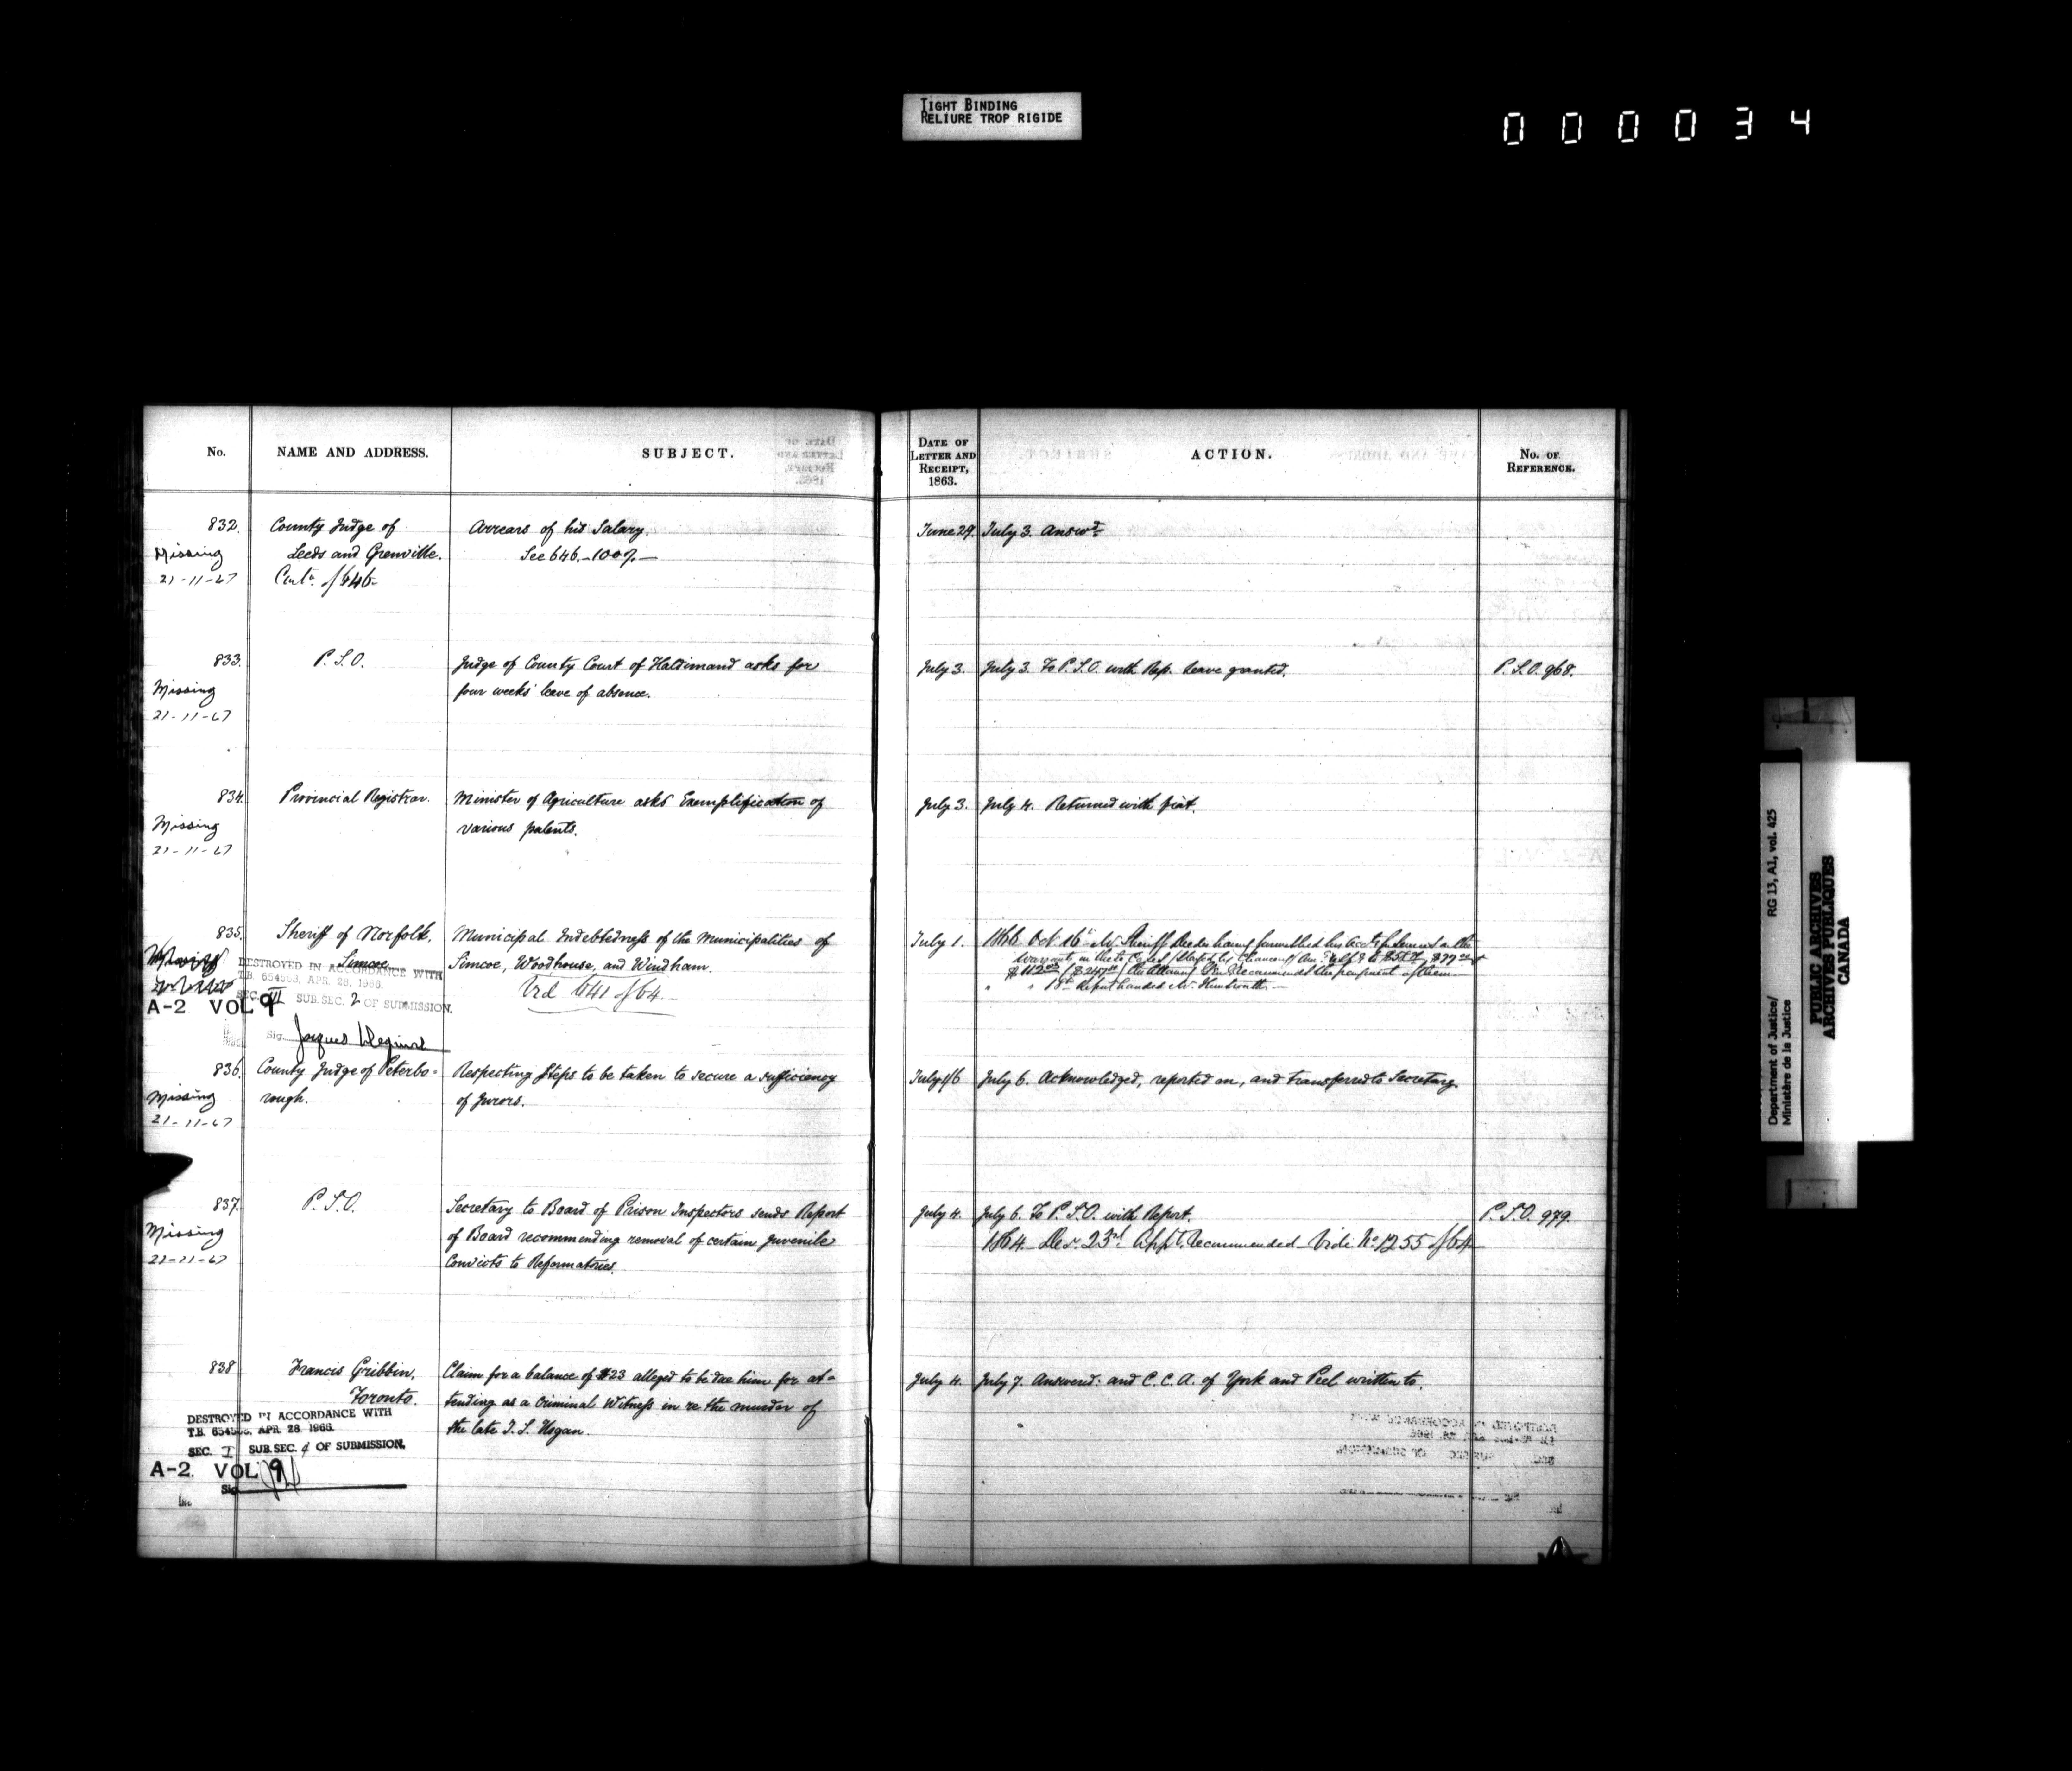 TIGHT BINDING
RELIURE TROP RIGIDE
000034
No.
NAME AND ADDRESS.
SUBJECT.
DATE OF
LETTER AND
RECEIPT,
1863.
ACTION.
No. OF
REFERENCE.
832.
County Judge of
Arrears of his Salary.
June 29.
July 3. Answd.
Missing
Leeds and Grenville.
See 646. 1007.
21-11-67
833.
P.S.O.
Judge of County Court of Haldimand asks for
July 3.
July 3. To P.S.O. with Rep. leave granted.
P.S.O. 968.
Missing
four weeks' leave of absence.
21-11-67
834.
Provincial Registrar.
Minister of Agriculture asks Exemplification of
July 3.
July 4. Returned with fiat.
Missing
various patents.
21-11-67
835.
Sheriff of Norfolk,
Municipal Indebtedness of the Municipalities of
July 1.
1866 Oct. 16
Simcoe
Simcoe, Woodhouse, and Windham.
DESTROYED IN ACCORDANCE WITH
T.B. 654503, APR. 28, 1966.
SEC. III SUB.SEC. 2 OF SUBMISSION.
641 of 64.
A-2 VOL 9
Sig.
836.
County Judge of Peterbo-
Respecting Steps to be taken to secure a sufficiency
July 1/6
July 6. Acknowledged, reported on, and transferred to Secretary.
Missing
rough.
of Jurors.
21-11-67
837.
P.S.O.
Secretary to Board of Prison Inspectors sends Report
July 4.
July 6. To P.S.O. with Report.
P.S.O. 979.
Missing
of Board recommending removal of certain juvenile
1864 Dec. 23rd Appt. Recommended Vide No. 1255 of 64
21-11-67
Convicts to Reformatories.
838
Francis Gribbin,
Claim for a balance of $23 alleged to be due him for at-
July 4.
July 7. Answered: and C.C.A. of York and Peel written to.
Toronto.
tending as a Criminal Witness in re the murder of
the late J. S. Hogan.
DESTROYED IN ACCORDANCE WITH
T.B. 654503, APR. 28, 1966.
SEC. I SUB.SEC. 4 OF SUBMISSION.
A-2. VOL 9
Sig.
Department of Justice/
Ministère de la Justice
RG 13, A1, vol. 425
PUBLIC ARCHIVES
ARCHIVES PUBLIQUES
CANADA